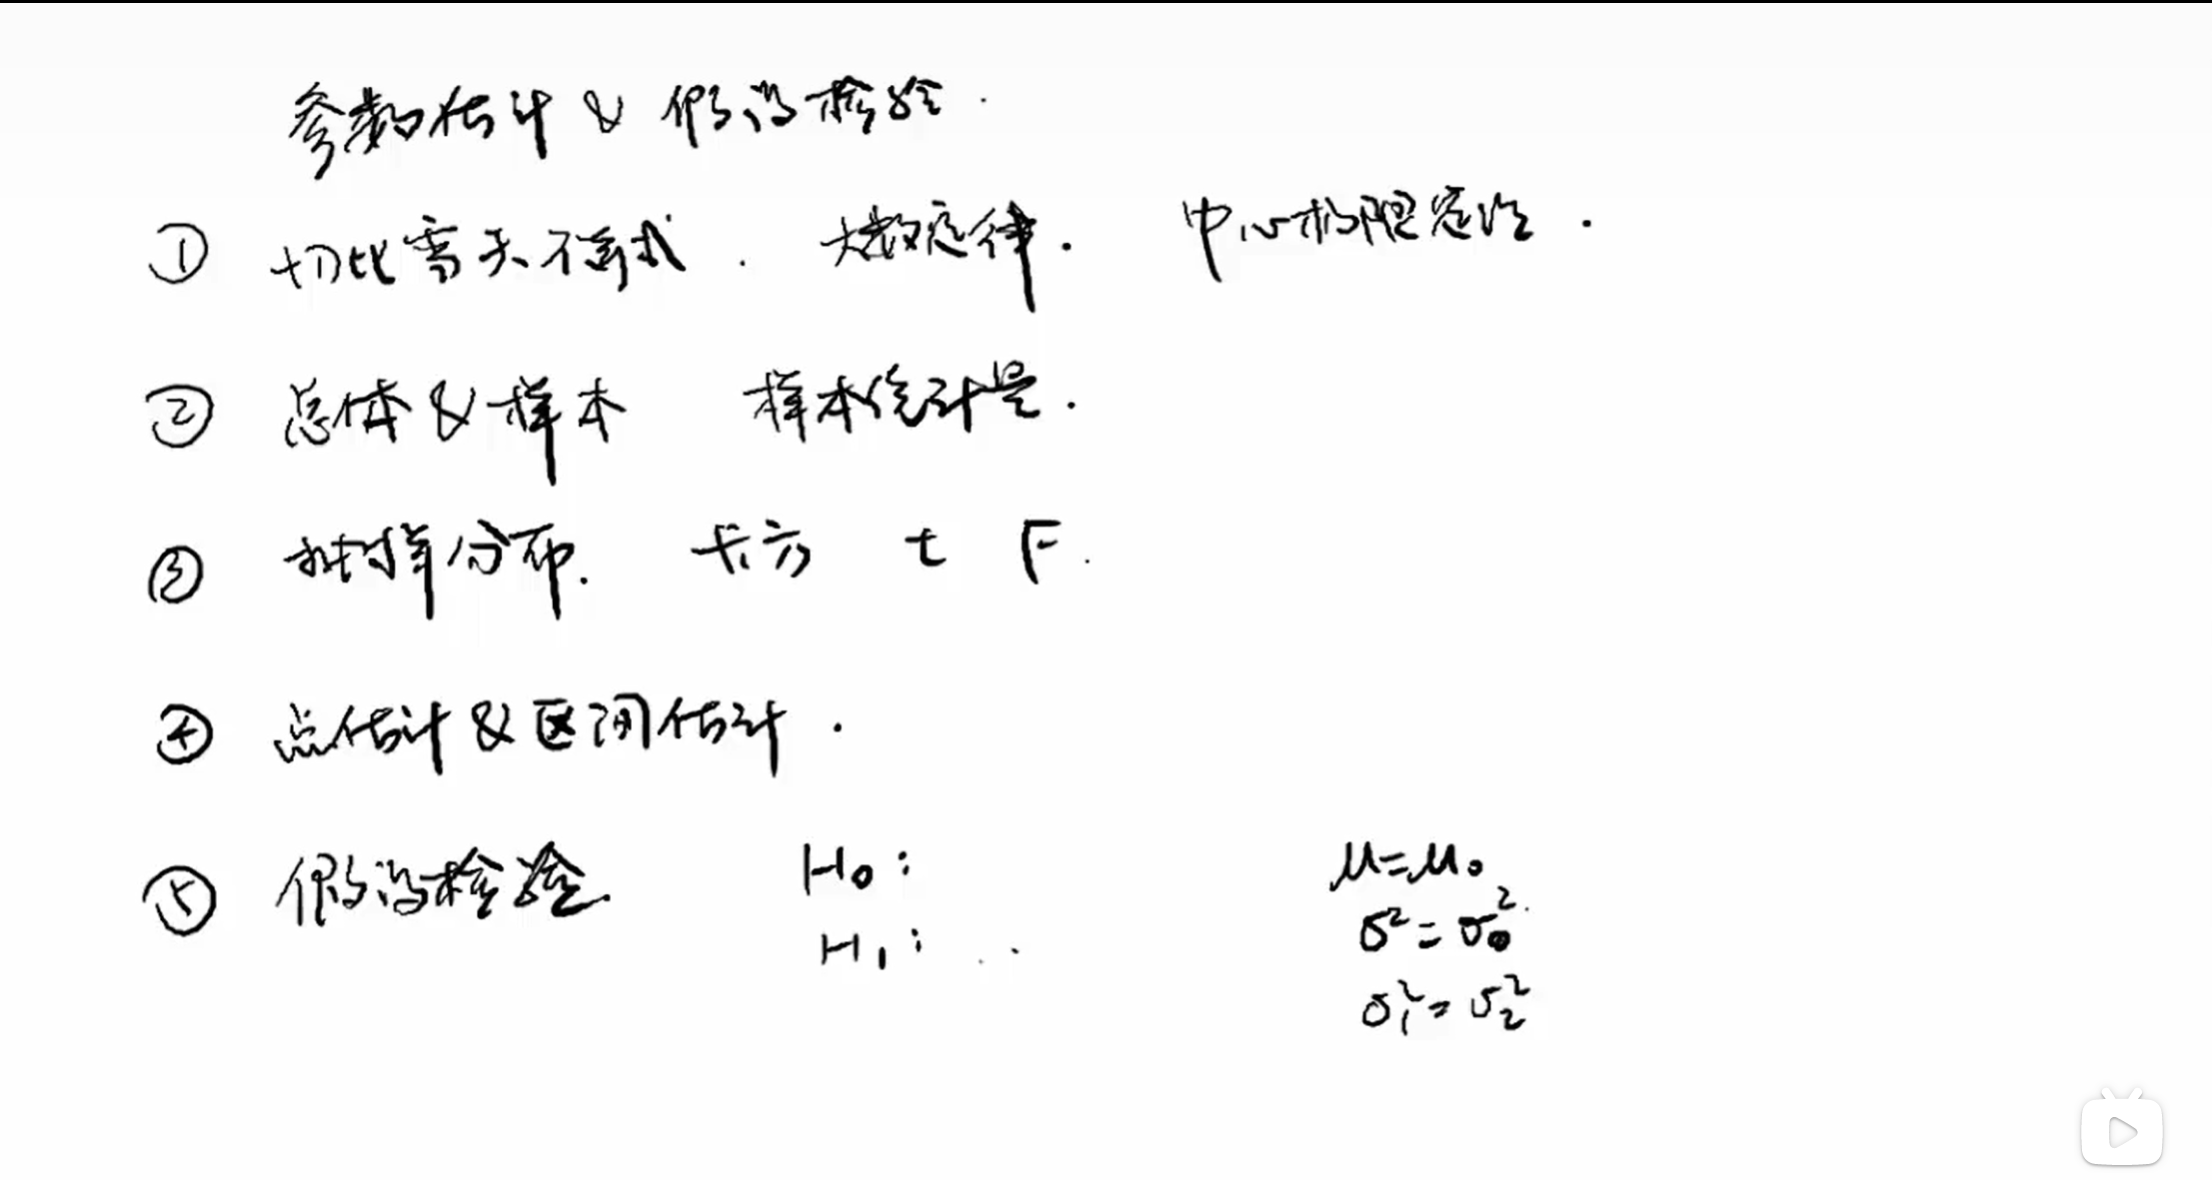 参数估计 & 假设检验.
① 切比雪夫不等式. 大数定律. 中心极限定理.
② 总体 & 样本 样本统计量.
③ 抽样分布. 卡方 t F.
④ 点估计 & 区间估计.
⑤ 假设检验. H₀: μ=μ₀
H₁: .. σ²=σ₀².
σ₁²=σ₂²